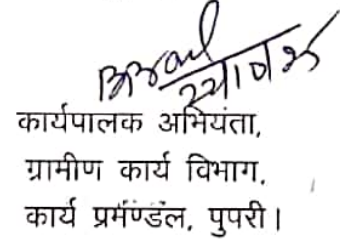 कार्यपालक अभियंता,
ग्रामीण कार्य विभाग,
कार्य प्रमंण्डल, पुपरी।